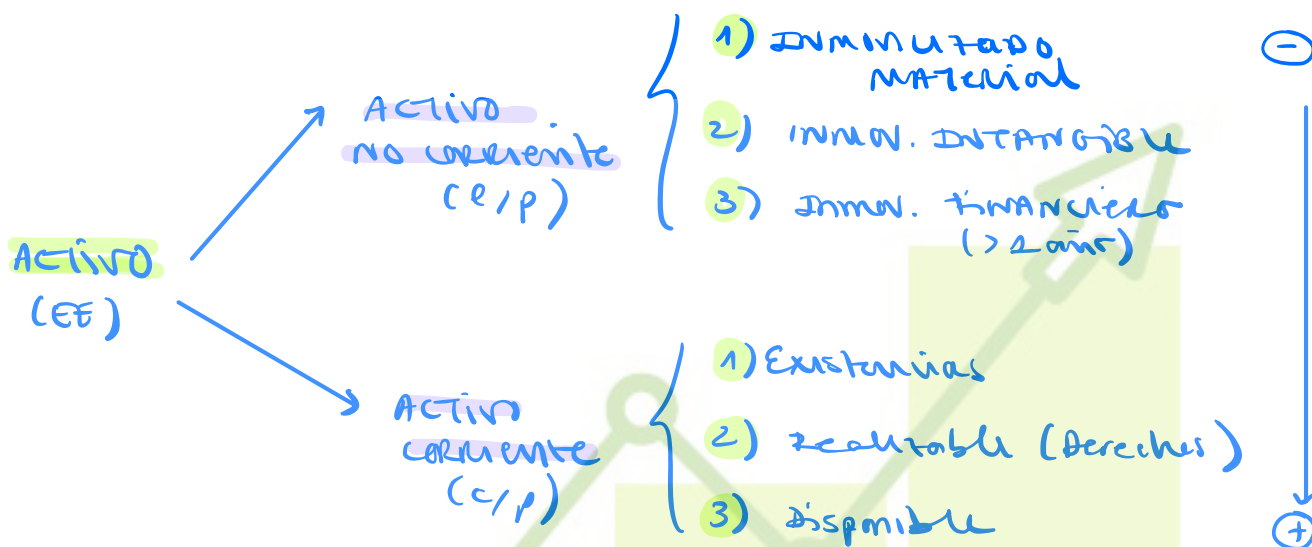 ACTIVO
(EE)
ACTIVO
NO CORRIENTE
(l/p)
1) INMOVILIZADO
MATERIAL
2) INMOV. INTANGIBLE
3) INMOV. FINANCIERO
(> 1 año)
ACTIVO
CORRIENTE
(c/p)
1) Existencias
2) Realizable (Derechos)
3) Disponible
-
+